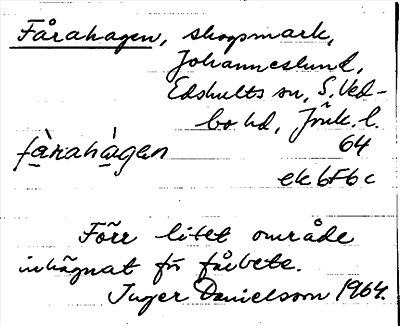 Fårahagen, skogsmark,
Johanneslund,
Edshults sn, S. Ved-
bo hd, Jönk. l.
fàrahàgen 64
ek 6F6c
Förr litet område
inhägnat för fårbete.
Inger Danielsson 1964.